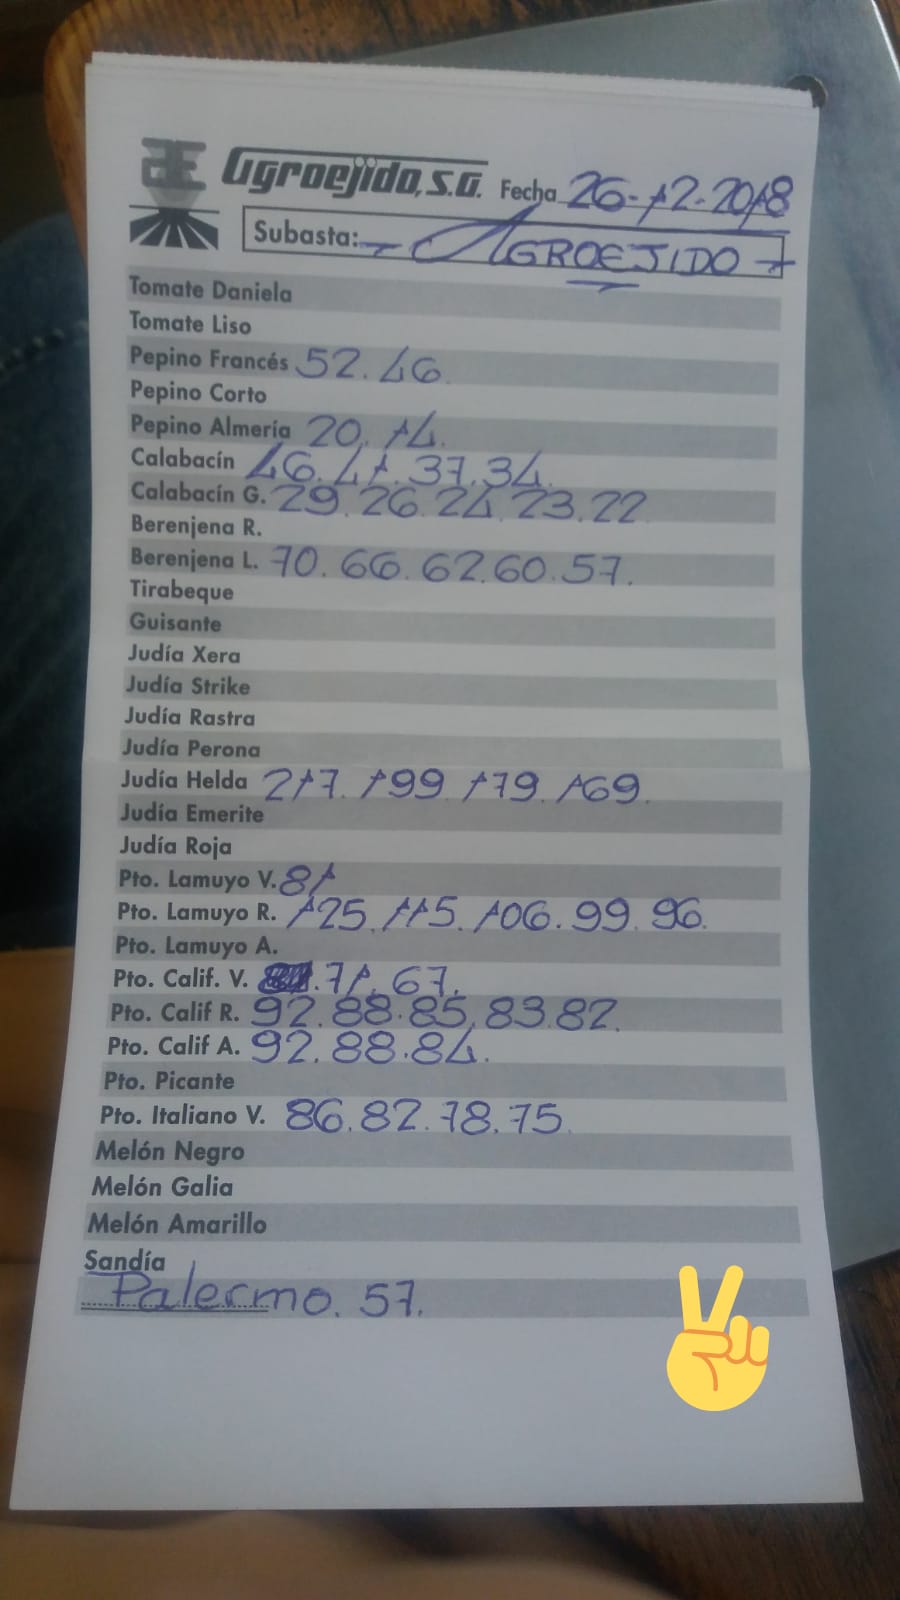 Agroejido, S.A. Fecha 26-12-2018
Subasta: - AGROEJIDO -
Tomate Daniela
Tomate Liso
Pepino Francés 52. 46.
Pepino Corto
Pepino Almería 20. 14.
Calabacín 46. 41. 37. 34.
Calabacín G. 29. 26. 24. 23. 22
Berenjena R.
Berenjena L. 70. 66. 62. 60. 57.
Tirabeque
Guisante
Judía Xera
Judía Strike
Judía Rastra
Judía Perona
Judía Helda 217. 199 179. 169.
Judía Emerite
Judía Roja
Pto. Lamuyo V. 81
Pto. Lamuyo R. 125. 115. 106. 99. 96.
Pto. Lamuyo A.
Pto. Calif. V. 71. 67.
Pto. Calif R. 92. 88. 85. 83. 82.
Pto. Calif A. 92. 88. 84.
Pto. Picante
Pto. Italiano V. 86. 82. 78. 75.
Melón Negro
Melón Galia
Melón Amarillo
Sandía
Palermo. 57.